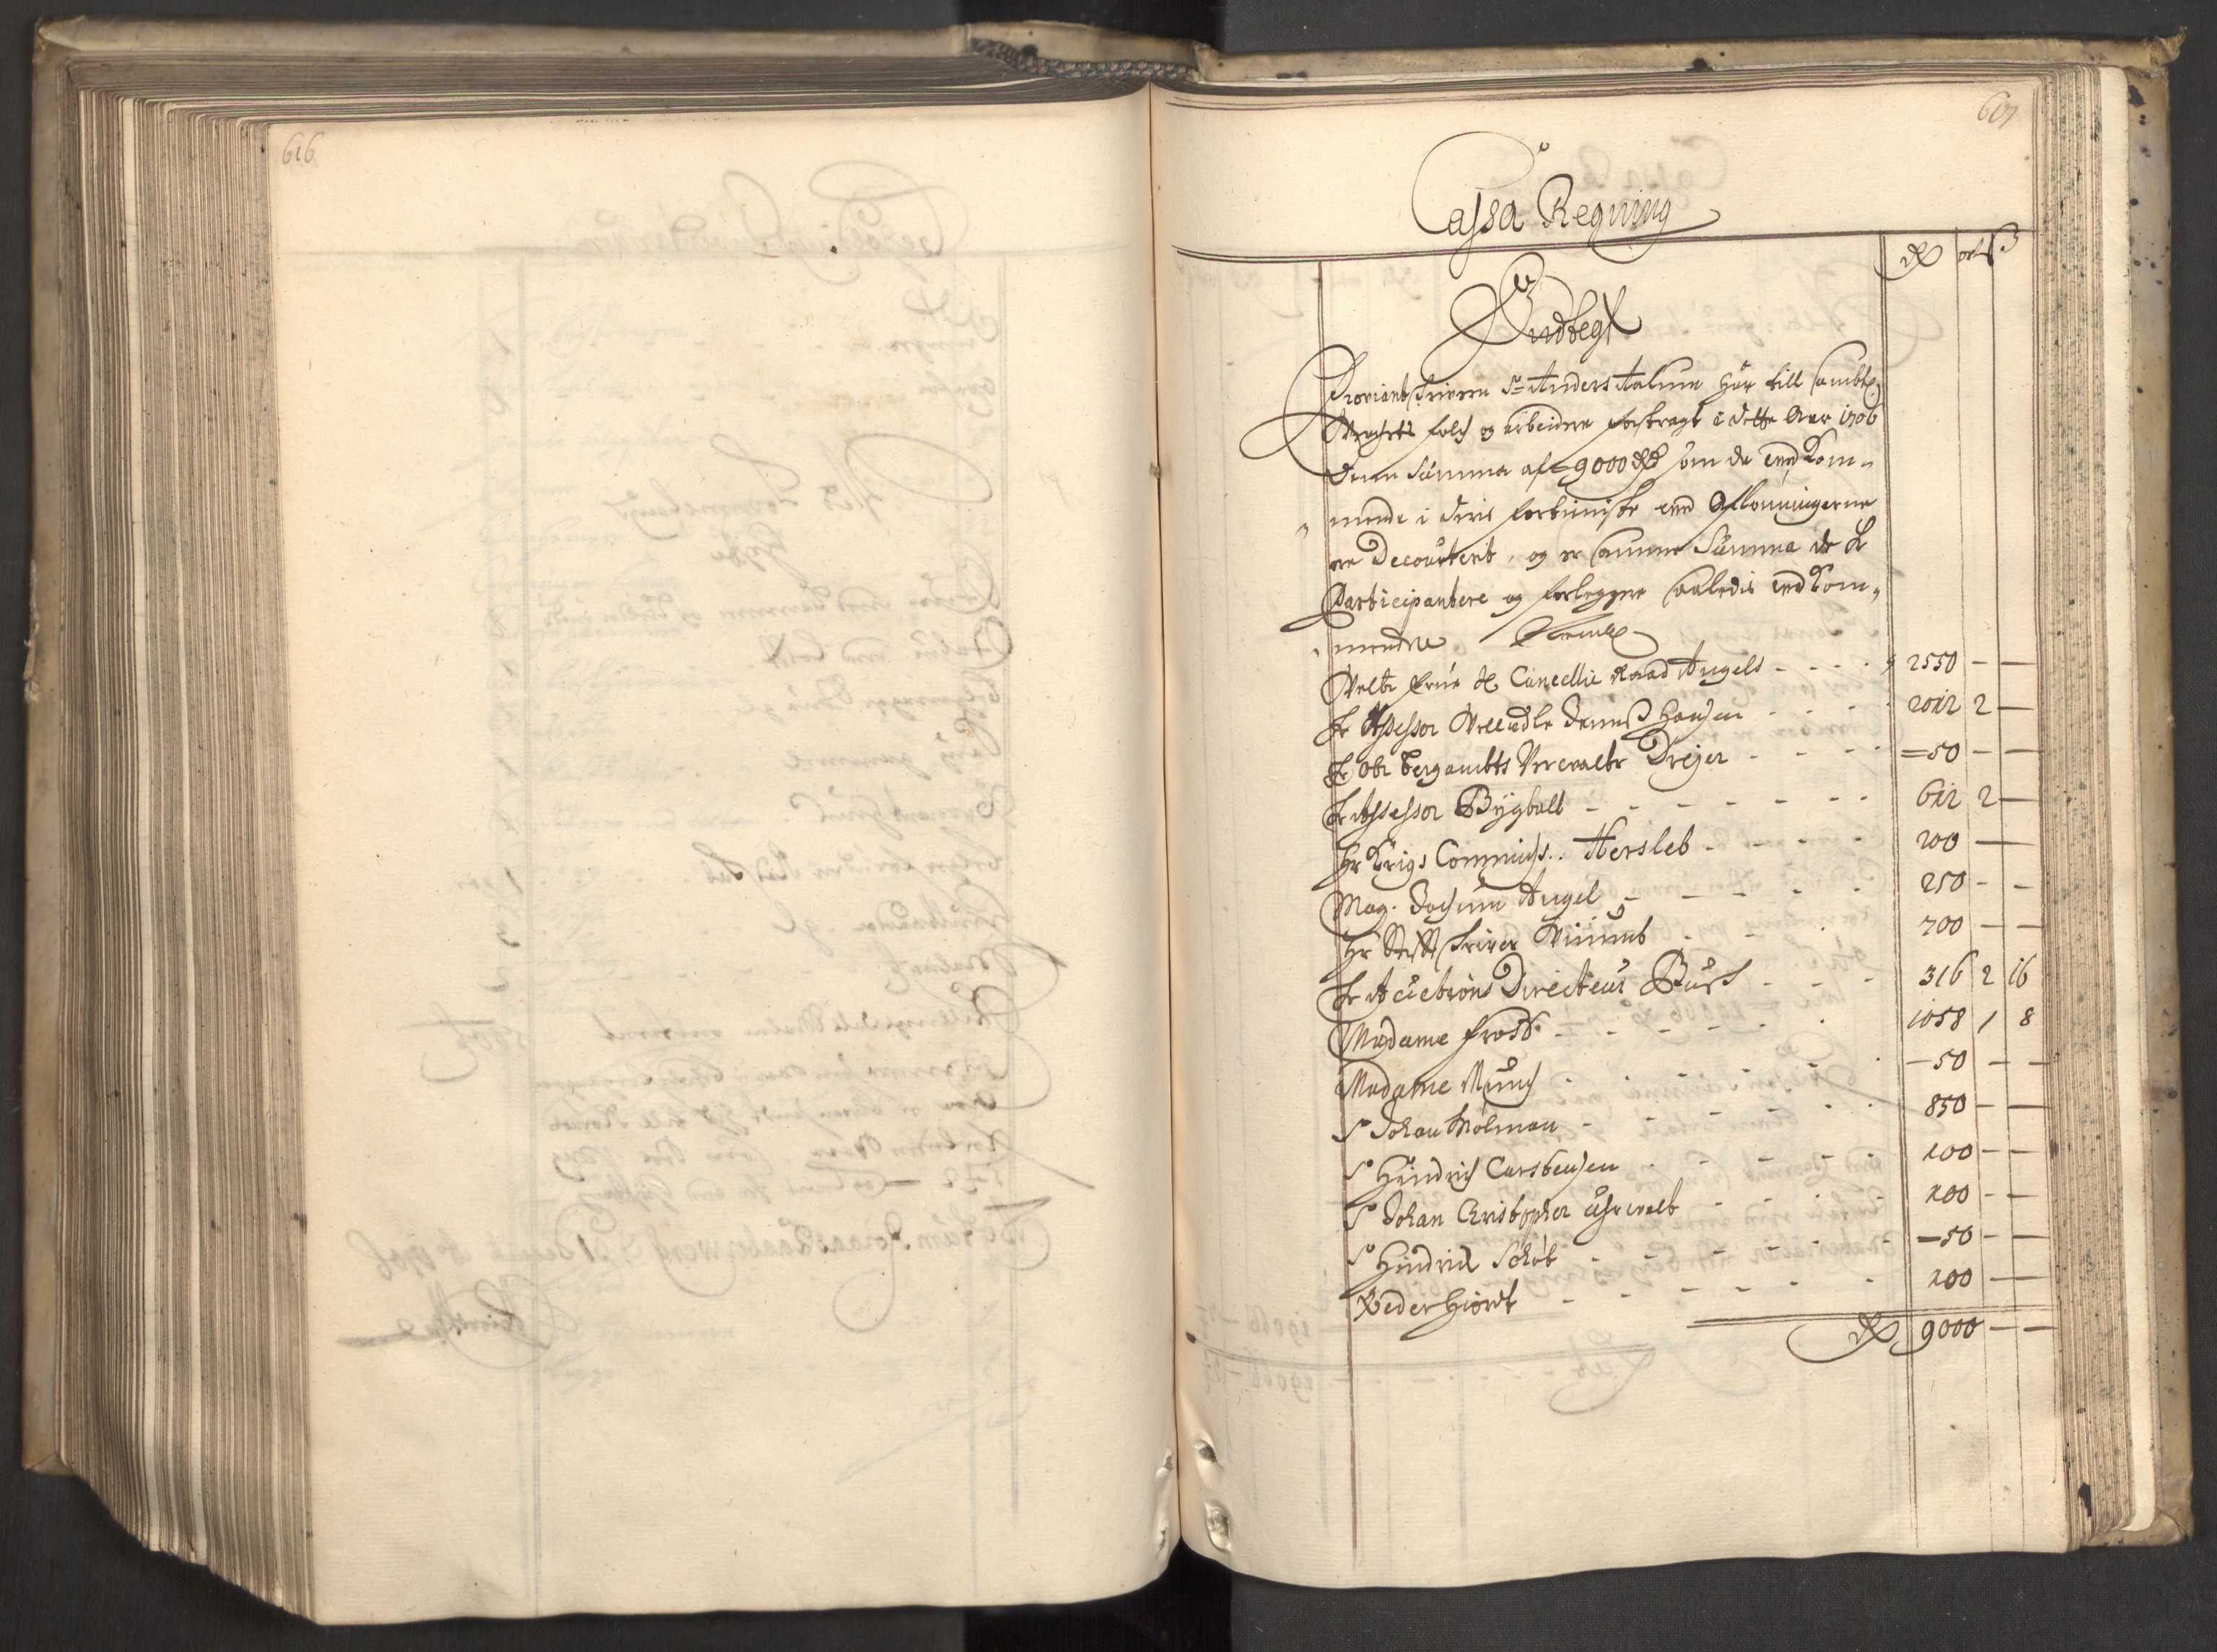 616
617
Cassa Regning
Rdr ort ß
Indtegt
Proviant skriveren Sr Anders Aalum har till samtl:
Verchets folch og arbeidere forstragt i dette Aar 1706
denne Summa af = 9000 Rdr som de ved Kom-
mende i deris fortienniste ved Afloningerne
er Decourterit, og er samme Summa de H
Participantere og forleggere saaledis vedkom-
mendre Nemlig
Velb: Frue H Cancellie Raad Angels - - - - 2550 - -
Hr Assessor Velædle Hansen - - - 2012 2 -
Hr Obr Bergambts Vervalter Dreyer - - - - = 50 - -
Hr Assessor Bÿgball - - - - - - - 612 2 -
Hr Krigs Commiss: Hersleb - - - - 200 -
Mag. Jochum Angel - - - - - 250 - -
Hr Stift skriver - - - 700 - -
Hr Auctions Directeur Búsch - - - 316 2 16
Madame Frost - - - - - - 1058 1 8
Madame Múnch - - - - - - - 50 - -
Sr Johan Mølman - - - - - - 850 - -
Sr Hindrich Carstensen - - - - - 100 - -
Sr Johan Christopher - - - - 100 - -
Sr Hindrich Schøt - - - - - - - 50 - -
Peder Hiort - - - - - - 100 -
Rdr 9000 - -